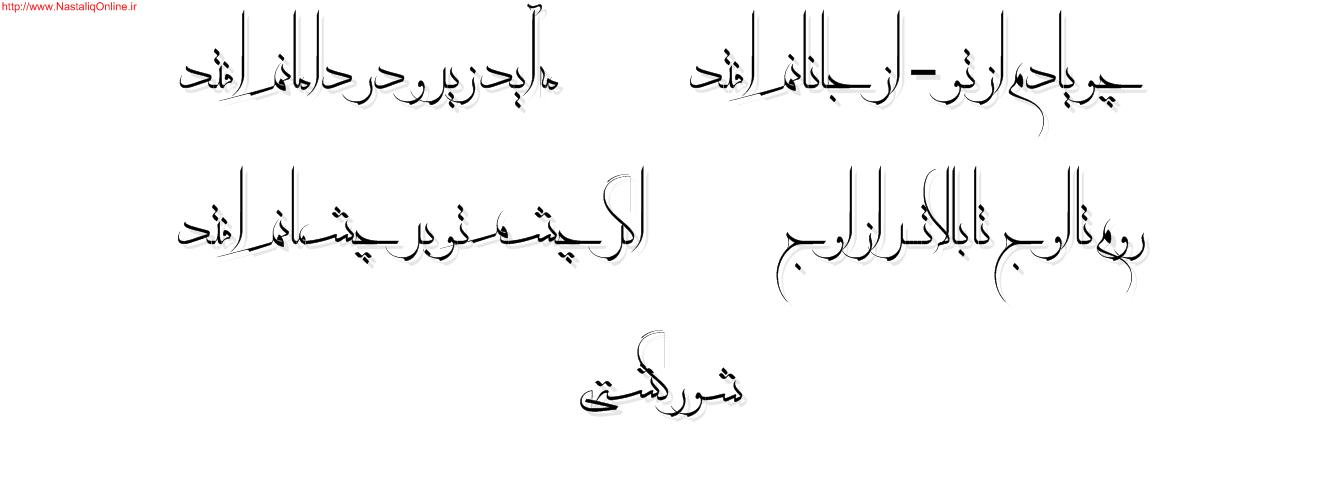 http://www.NastaliqOnline.ir
چو یادم از تو - از جانانم افتد مه آید زیر و در دامانم افتد
روم تا اوج تا بالاتر از اوج اگر چشم تو بر چشمانم افتد
شورگشتی